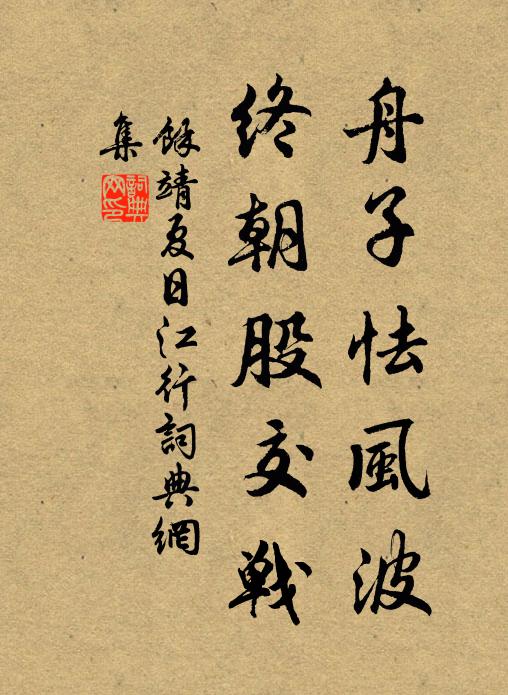 舟子怯風波
終朝股交戰
餘靖夏日江行詞典網
集
詞典網印